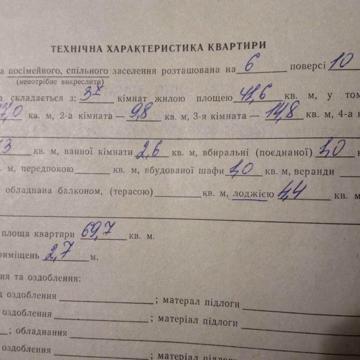 ТЕХНІЧНА ХАРАКТЕРИСТИКА КВАРТИРИ
а посімейного, спільного заселення розташована на 6 поверсі 10
(непотрібне викреслити)
а складається з: 3х кімнат жилою площею 41,6 кв. м, у том
7,0 кв. м, 2-а кімната — 9,8 кв. м, 3-я кімната — 14,8 кв. м, 4-а к
3 кв. м, ванної кімнати 2,6 кв. м, вбиральні (поєднаної) 1,0 к
в. м, передпокою кв. м, вбудованої шафи 1,0 кв. м, веранди
обладнана балконом, (терасою) кв. м, лоджією 4,4 кв. м
площа квартири 69,7 кв. м.
риміщень 2,7 м.
ня та оздоблення:
д оздоблення ; матерал підлоги
оздоблення ; матеріал підлоги
; обладнання
оздоблення ; матеріал підлоги